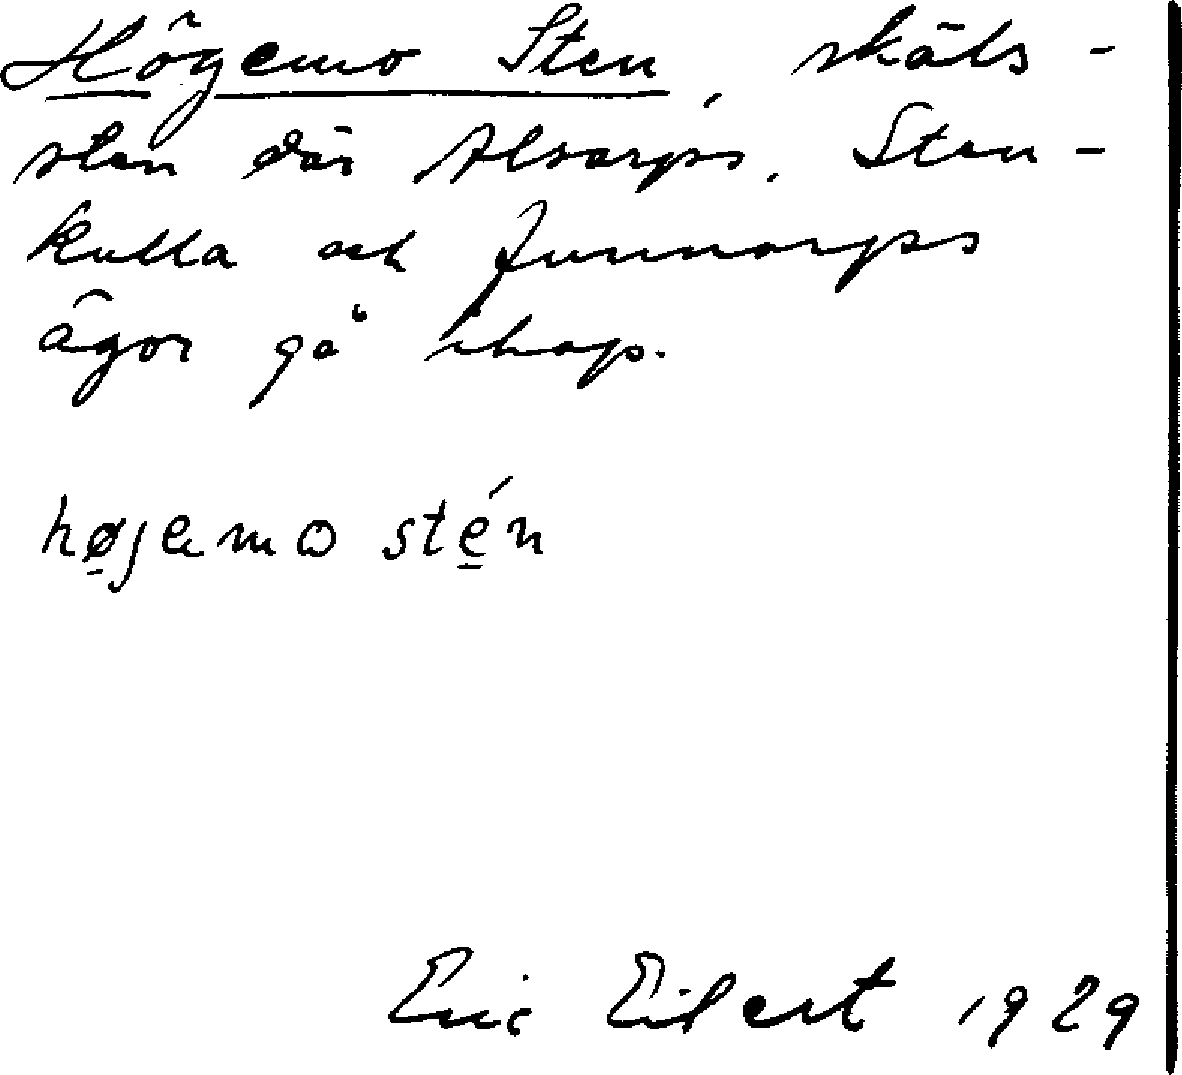 Högemo Sten, skäls-
sten där Alsarps, Sten-
kulla och Junnarps
ägor gå ihop.
højemo stén
Eric Eilert 1929